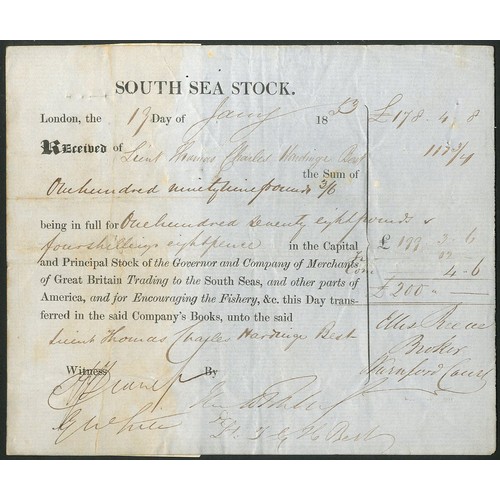 SOUTH SEA STOCK.
London, the 19 Day of Jany 1853
Received of Lieut Thomas Charles Hardinge Best
the Sum of
One hundred ninety nine pounds 3/6
being in full for One hundred seventy eight pounds &
four shillings eightpence in the Capital
and Principal Stock of the Governor and Company of Merchants
of Great Britain Trading to the South Seas, and other parts of
America, and for Encouraging the Fishery, &c. this Day trans-
ferred in the said Company's Books, unto the said
Lieut Thomas Charles Hardinge Best
Witness By
£178 - 4 - 8
111 3/4
£ 199 3 - 6
4 - 6
£ 200
Ellis
Broker
Court
Best